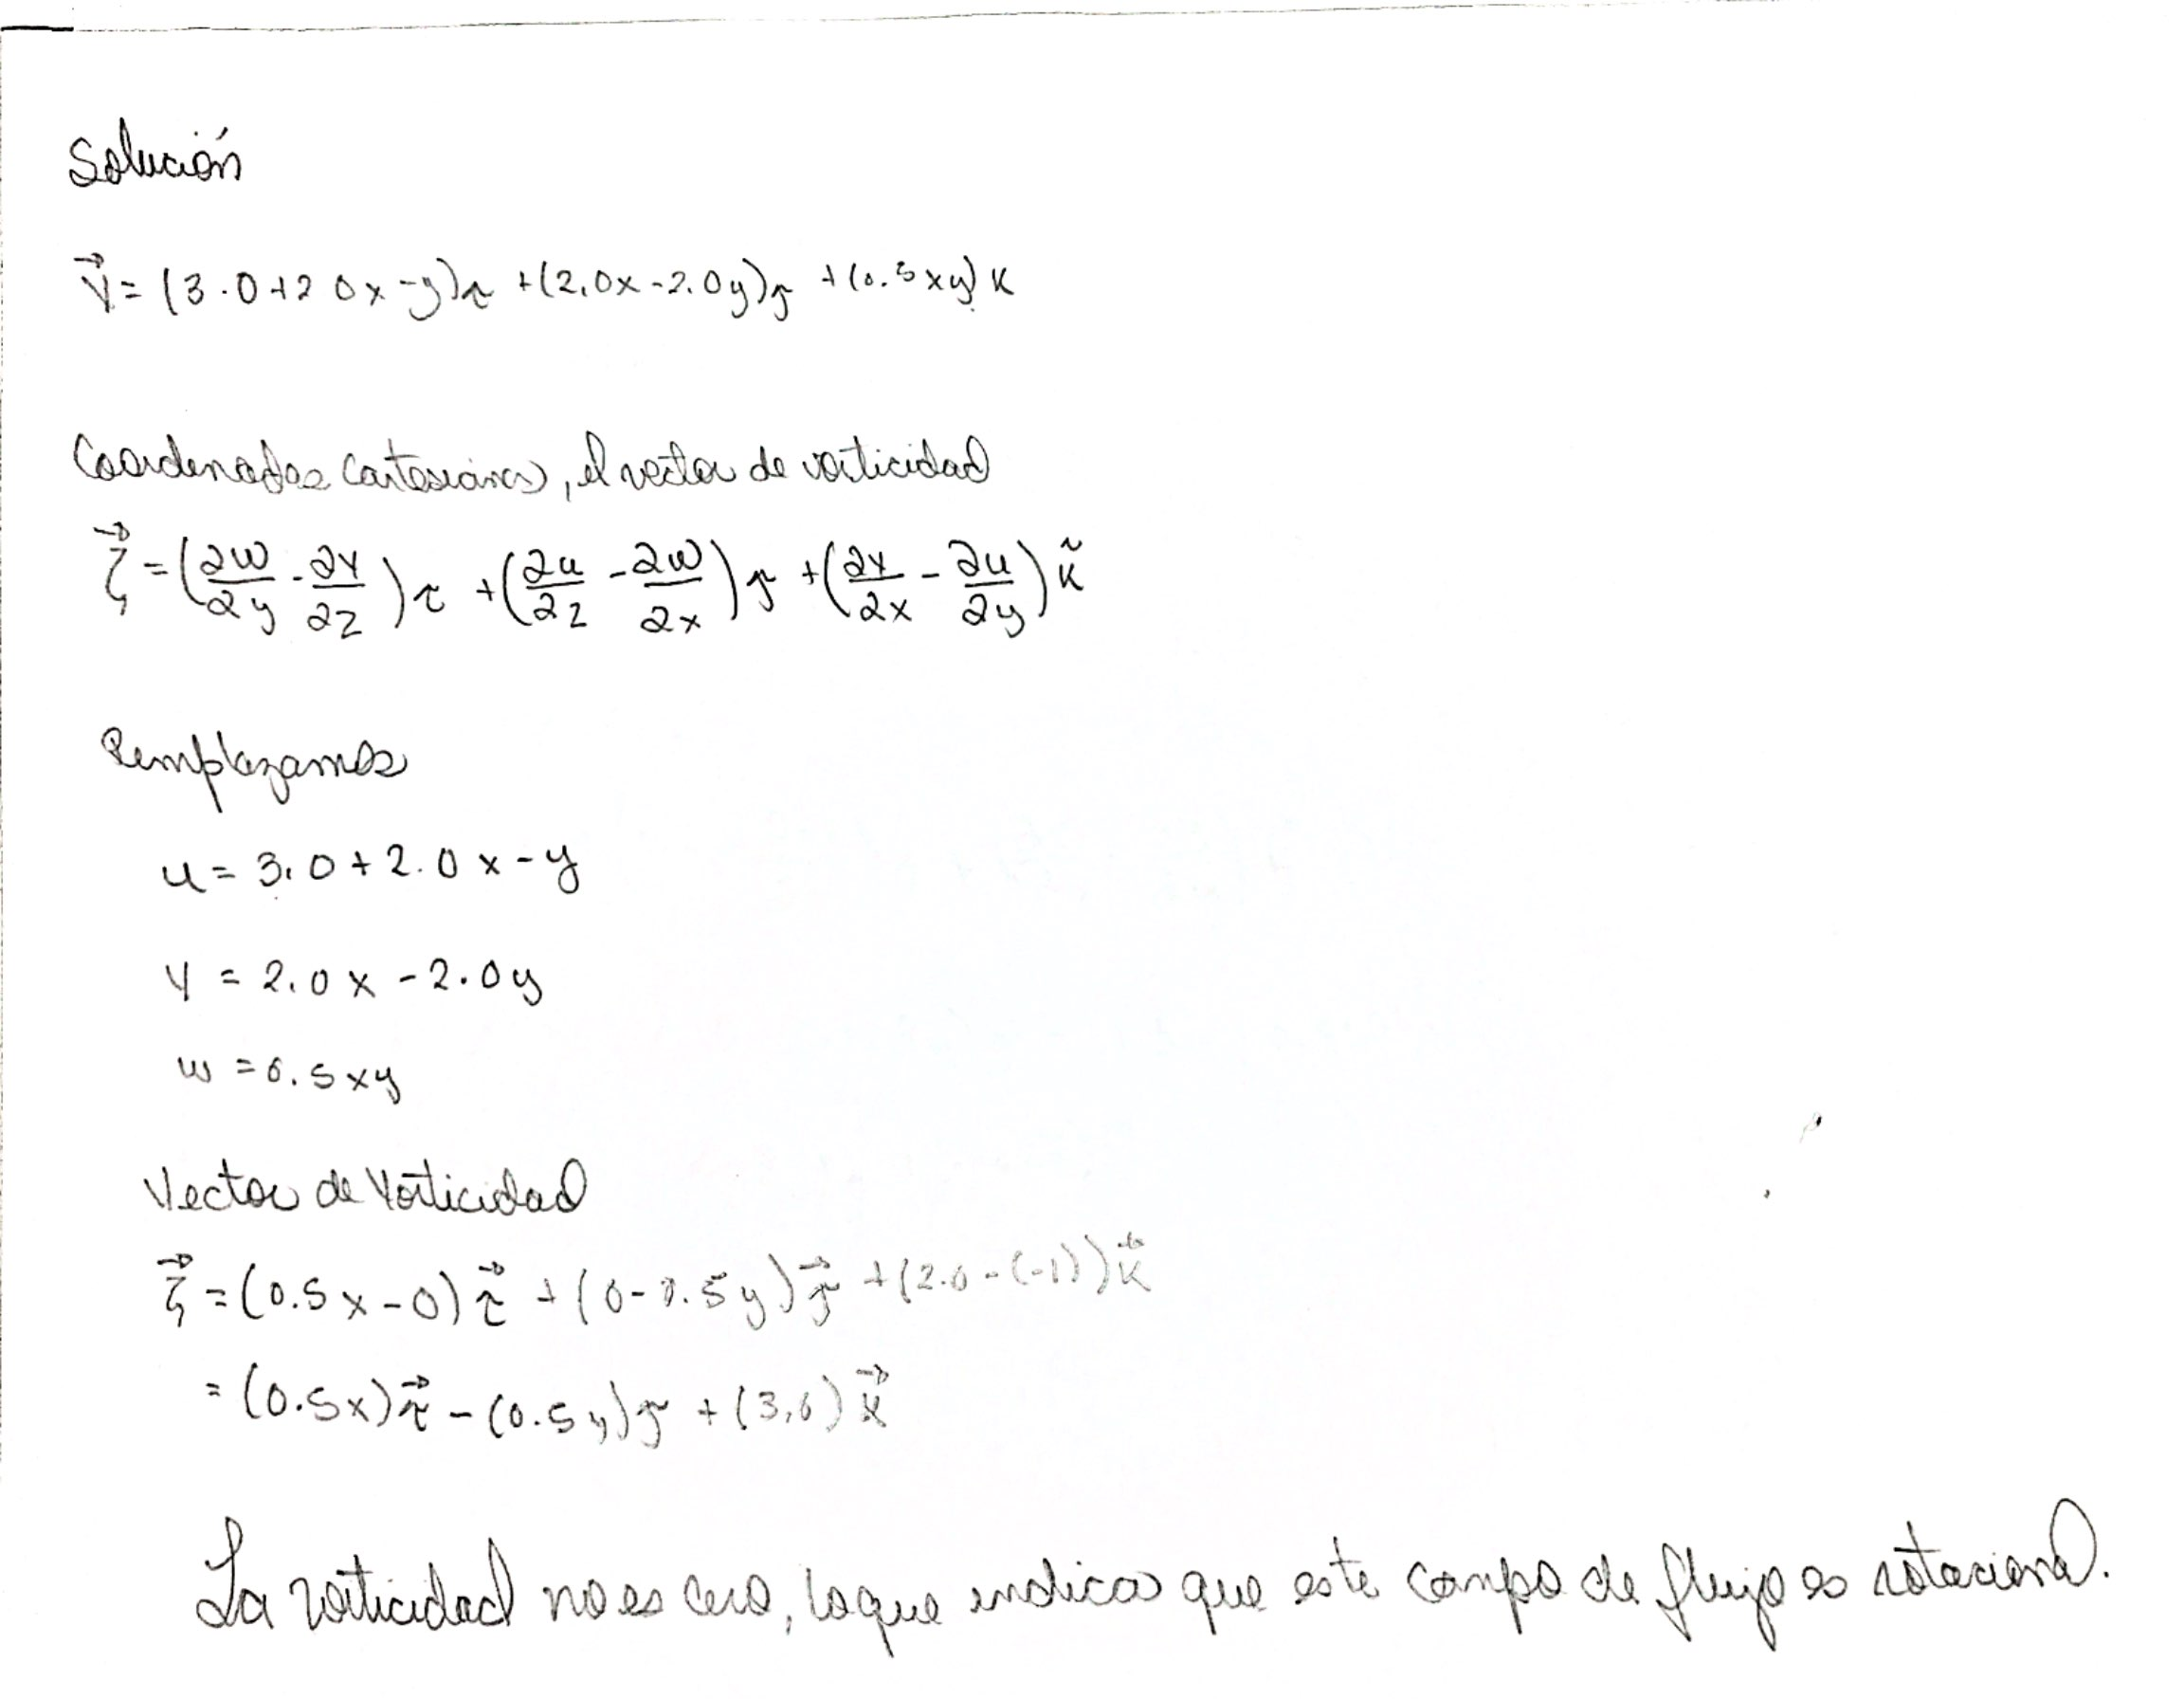 Solución
V⃗ = (3.0+2.0x-y)i + (2.0x-2.0y)j + (0.5xy)k
Coordenadas Cartesianas, el vector de vorticidad
ζ⃗ = (∂w/∂y - ∂v/∂z)i + (∂u/∂z - ∂w/∂x)j + (∂v/∂x - ∂u/∂y)k⃗
Remplazamos
u = 3.0 + 2.0x - y
v = 2.0x - 2.0y
w = 0.5xy
Vector de Vorticidad
ζ⃗ = (0.5x - 0)i⃗ + (0 - 0.5y)j⃗ + (2.0 - (-1))k⃗
= (0.5x)i⃗ - (0.5y)j + (3.0)k⃗
La vorticidad no es cero, lo que indica que este campo de flujo es rotacional.